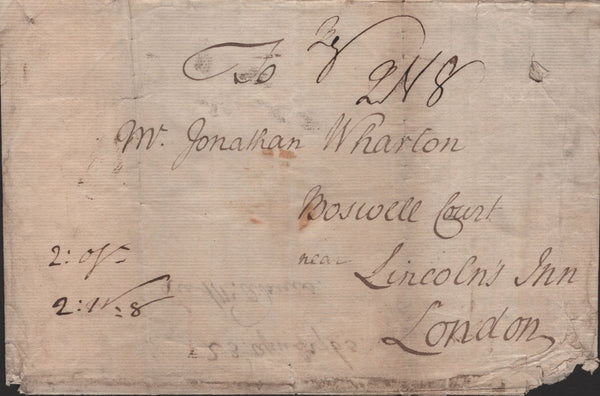 To
2N8
Mr. Jonathan Wharton
Boswell Court
near Lincoln's Inn
London
2: oz
2: N = 8